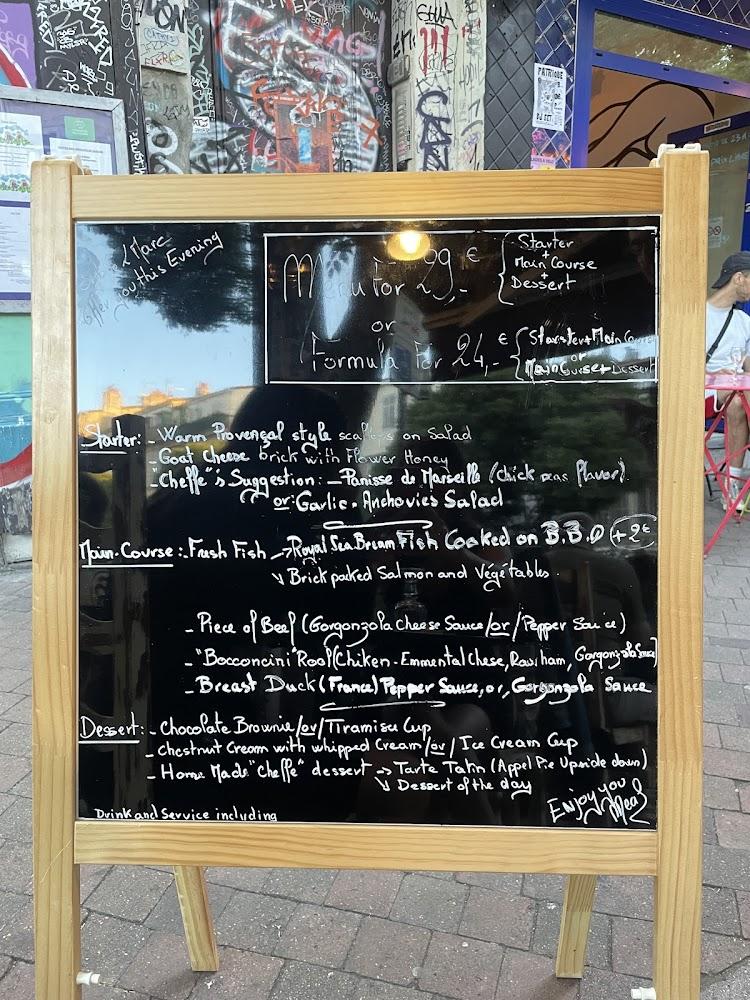 Marc
you this Evening
Menu For 29,- €
Starter
+
Main Course
+
Dessert
or
Formula For 24,- €
Starster+Main Course
or
Main Course+Dessert
Starter: - Warm Provençal style scallops on Salad
- Goat Cheese brick with Flower Honey
- "Cheffe"'s Suggestion: - Panisse de Marseille (chick peas flavor)
or: Garlic - Anchovies Salad
Main-Course: - Fresh Fish → Royal Sea Bream Fish Cooked on B.B.Q +2€
↘ Brick packed Salmon and Végétables.
- Piece of Beef (Gorgonzola Cheese Sauce /or/ Pepper Sauce)
- "Bocconcini" Roof (Chiken - Emmental Chese, Raw ham, Gorgonzola Sauce)
- Breast Duck (France) Pepper Sauce, or, Gorgonzola Sauce
Dessert: - Chocolate Brownie /or/ Tiramisu Cup
- chestnut Cream with whipped Cream /or/ Ice Cream Cup
- Home Made "Cheffe" dessert → Tarte Tatin (Appel Pie Upside down)
↘ Dessert of the day
Enjoy you
Meal
Drink and Service including
PATRIQUE
DJ SET